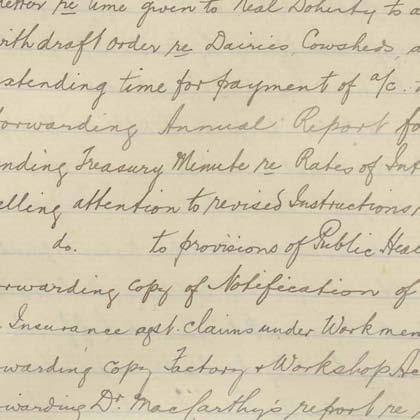 etter re time given to Neal Doherty to a
with draft order re Dairies, Cowsheds, a
xtending time for payment of a/c.
orwarding Annual Report fo
nding Treasury Minute re Rates of Int
elling attention to revised Instructions
do. to provisions of Public Heal
orwarding copy of Notification of
Insurance agst. claims under Workmen
rwarding copy Factory & Workshop Ac
rwarding Dr. MacCarthy's report re